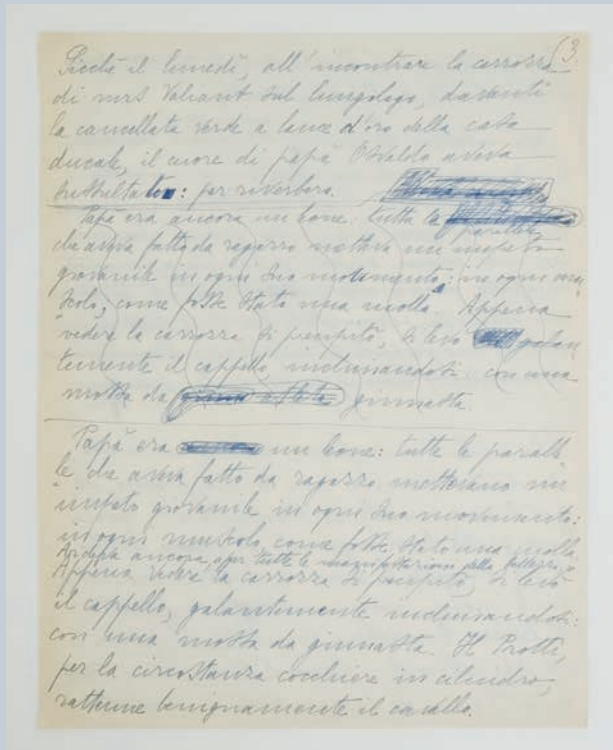 (3.
Sicché il lunedì, all'incontrare la carrozza
di mrs Valiant sul lungolago, davanti
la cancellata verde a lance d'oro della casa
ducale, il cuore di papà Osvaldo aveva
sussultato: per riverbero.
Papà era ancora un leone: tutte le
parallele
che aveva fatto da ragazzo metteva un impeto
giovanile in ogni suo movimento, in ogni mu
scolo, come fosse stato una molla. Appena
vedere la carrozza si impuntò, si levò galan
temente il cappello, inchinandosi con una
mossa da ginnasta.
Papà era un leone: tutte le parall
le che aveva fatto da ragazzo mettevano un
impeto giovanile in ogni suo movimento:
in ogni muscolo come fosse stato una molla.
ancora, per tutte le manifestazioni della bellezza,
Appena vedere la carrozza si impuntò, si levò
il cappello, galantemente inchinandosi:
con una mossa da ginnasta. Il Protti,
per la circostanza cocchiere in cilindro,
rattenne benignamente il cavallo.